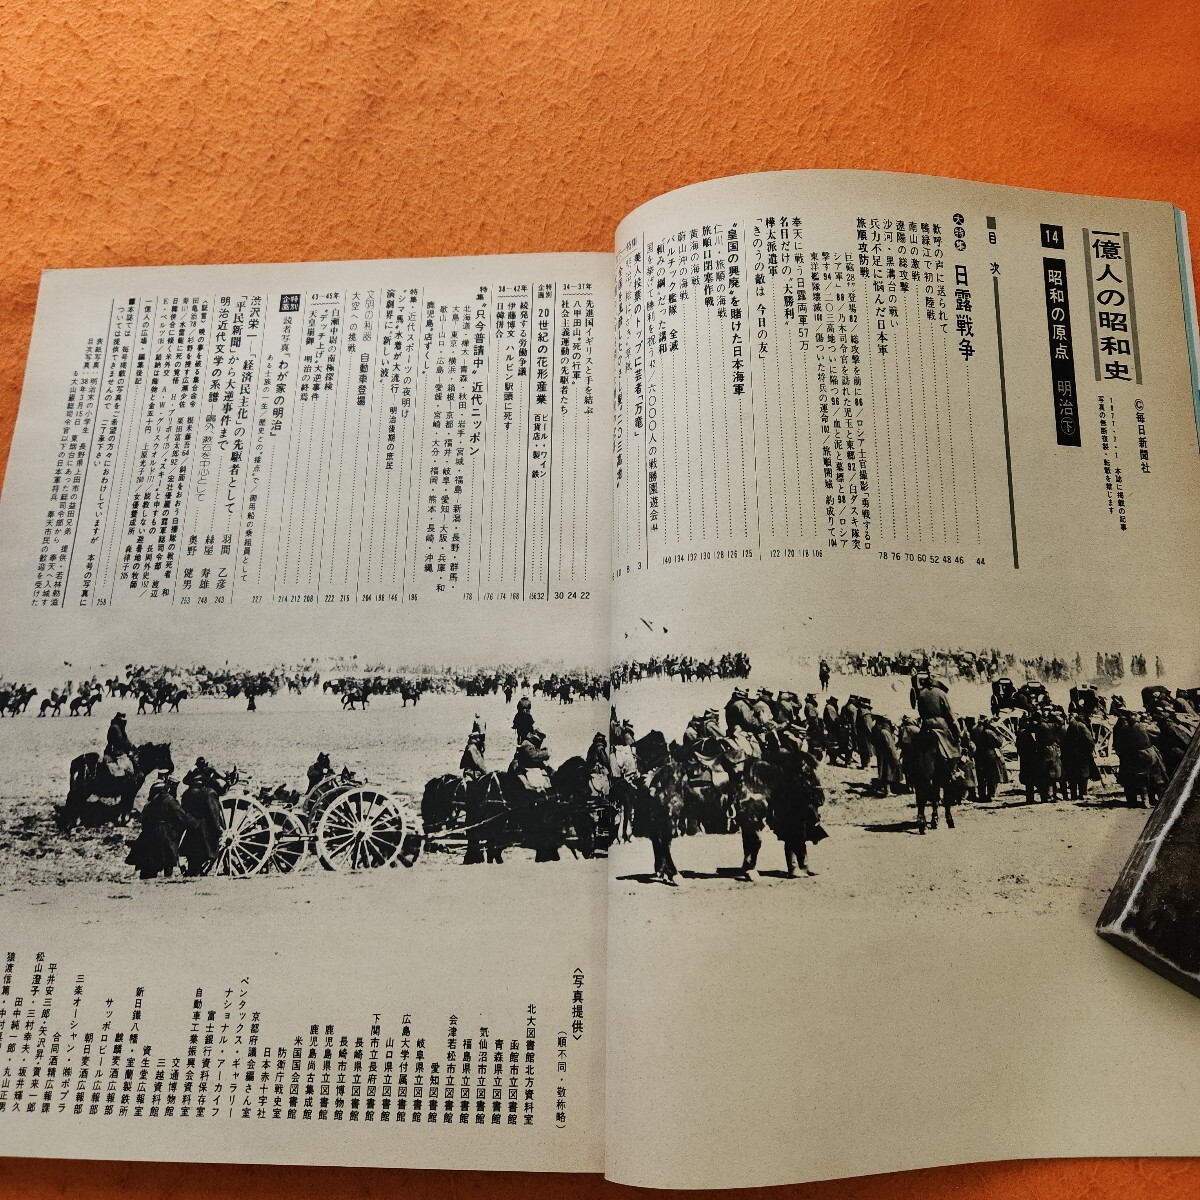 一億人の昭和史
14
昭和の原点 明治(下)
©毎日新聞社
1977・7・1 本誌に掲載の記事
写真の無断複製・転載を禁じます
目次
大特集 日露戦争 44
歓呼の声に送られて 46
鴨緑江で初の陸戦 48
南山の激戦 52
遼陽の総攻撃 60
沙河・黒溝台の戦い 70
兵力不足に悩んだ日本軍 76
旅順攻防戦 78
奉天に戦う日露両軍57万 106
名目だけの“大勝利” 118
樺太派遣軍 120
「きのうの敵は 今日の友」 122
“皇国の興廃”を賭けた日本海軍 125
仁川・旅順の海戦 126
旅順口閉塞作戦 128
黄海の海戦 130
蔚山沖の海戦 132
バルチック艦隊 全滅 134
“頼みの綱”だった講和 140
国を挙げて勝利を祝う 42
六〇〇〇人の戦勝園遊会 144
美人投票のトップに芸者「万竜」
34―37年
先進国イギリスと手を結ぶ 22
八甲田山“死の行軍” 24
社会主義運動の先駆者たち 30
特別企画 20世紀の花形産業
ビール・ワイン 32
百貨店・製鉄 156
38―42年
続発する労働争議 168
伊藤博文 ハルビン駅頭に死す 174
日韓併合 176
特集“只今普請中”近代ニッポン 178
北海道・樺太・青森・秋田・岩手・宮城・福島・新潟・長野・群馬・
大島・東京・横浜・箱根・京都・福井・岐阜・愛知・大阪・兵庫・和
歌山・山口・広島・愛媛・宮崎・大分・福岡・熊本・長崎・沖縄
鹿児島“店ずくし”
特集・近代スポーツの夜明け 196
“シマ馬”水着が大流行 明治後期の庶民 146
演劇界に“新しい波” 198
文明の利器 自動車登場 204
大空への挑戦 216
43―45年
白瀬中尉の南極探検 222
“デッチ上げ”大逆事件 208
天皇崩御 明治の終焉 212
特別企画 読者写真「わが家の明治」 214
ある士族の一生／歴史との“接点”で／御用船の乗組員として 227
渋沢栄一―「経済民主化」の先駆者として 羽間乙彦 243
「平民新聞」から大逆事件まで 絲屋寿雄 248
明治近代文学の系譜―鷗外 漱石を中心として 奥野健男 253
一億人の広場・編集後記 258
■本誌では 毎号掲載の写真をご希望の方々におわけしていますが 本号の写真に
ついては提供できませんので ご了承下さい
表紙写真・明治末の小学生 長野県上田市の益田兄弟 提供・若林勃造
目次写真・38年3月15日 東煙台にあった総司令部から 奉天へ入城す
る大山巌総司令官以下の日本軍将兵 奉天市民の歓迎を受けた
〈写真提供〉
(順不同・敬称略)
北大図書館北方資料室
函館市立図書館
青森県立図書館
気仙沼市立図書館
福島県立図書館
会津若松市立図書館
愛知図書館
岐阜県立図書館
広島大学付属図書館
山口県立図書館
下関市立長府図書館
長崎県立図書館
長崎市立博物館
鹿児島県立図書館
鹿児島尚古集成館
米国国会図書館
防衛庁戦史室
日本赤十字社
京都府議会編さん室
ペンタックス・ギャラリー
ナショナル・アーカイフ
富士銀行資料保存室
自動車工業振興会資料室
交通博物館
三越資料館
資生堂広報室
新日鐵八幡・室蘭製鉄所
麒麟麦酒広報部
サッポロビール広報部
朝日麦酒広報部
三楽オーシャン・㈱ポプラ
合同酒精広報課
平井安三郎・矢沢昇・賀来一郎
松山澄子・三村幸夫・坂井輝久
田中純一郎・丸山正男